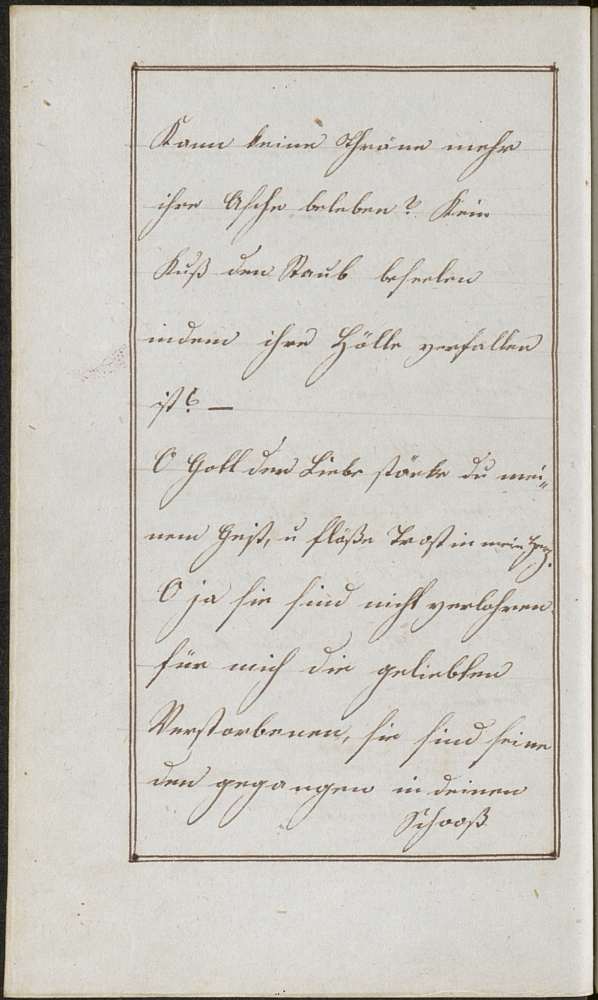 Kann keine Thräne mehr
ihre Asche beleben? Kein
Kuß den Staub beseelen
indem ihre Hölle verfallen
ist? —
O Gott der Liebe stärke du mei„
nem Geist, u flöße Trost in mein Herz.
O ja sie sind nicht verlohren
für mich die geliebten
Verstorbenen, sie sind
den gegangen in deinen
Schooß